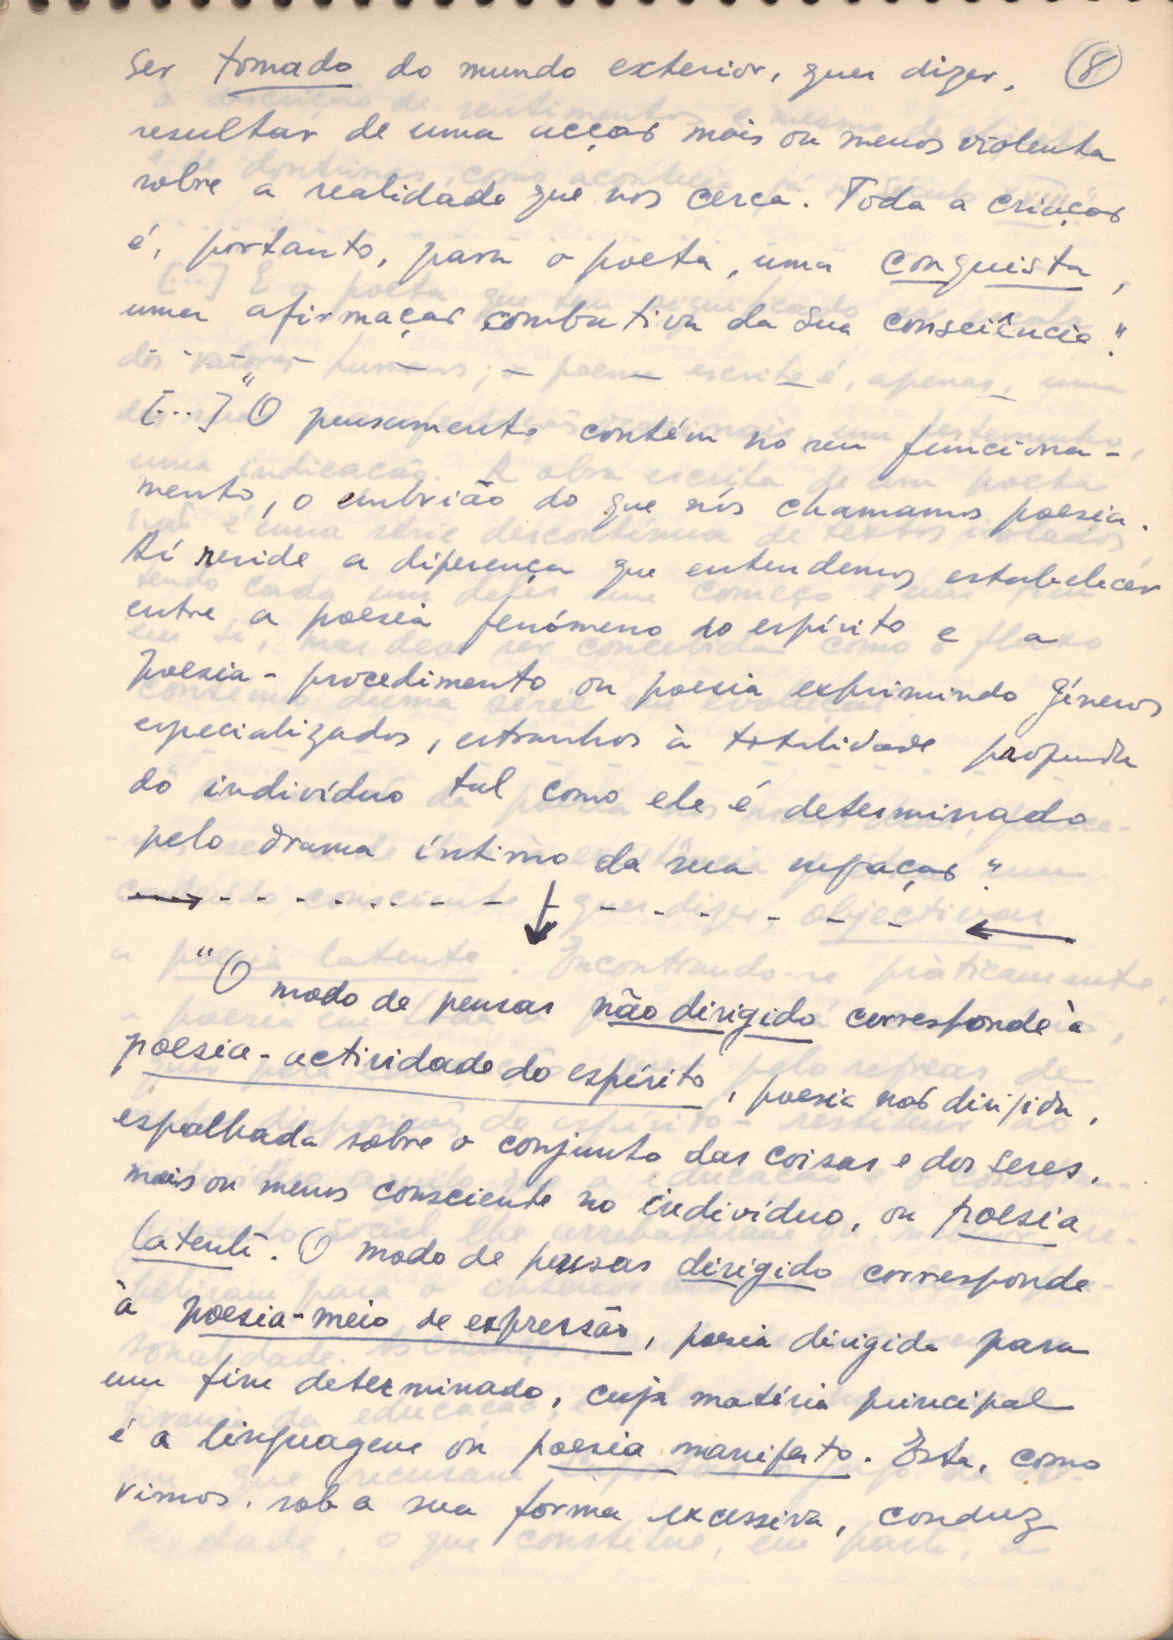 8
ser tomado do mundo exterior, quer dizer,
resultar de uma acção mais ou menos violenta
sobre a realidade que nos cerca. Toda a criação
é, portanto, para o poeta, uma conquista,
uma afirmação combativa da sua consciência."
[...] "O pensamento contém no seu funciona-
mento, o embrião do que nós chamamos poesia.
Aí reside a diferença que entendemos estabelecer
entre a poesia fenómeno do espírito e a
poesia-procedimento ou poesia exprimindo géneros
especializados, estranhos à totalidade profunda
do indivíduo tal como ele é determinado
pelo drama íntimo da sua"
"O modo de pensar não dirigido corresponde à
poesia-actividade do espírito, poesia não dirigida,
espalhada sobre o conjunto das coisas e dos seres,
mais ou menos consciente no indivíduo, ou poesia
latente. O modo de pensar dirigido corresponde
à poesia-meio de expressão, poesia dirigida para
um fim determinado, cuja matéria principal
é a linguagem ou poesia manifesto. Esta, como
vimos, sob a sua forma excessiva, conduz